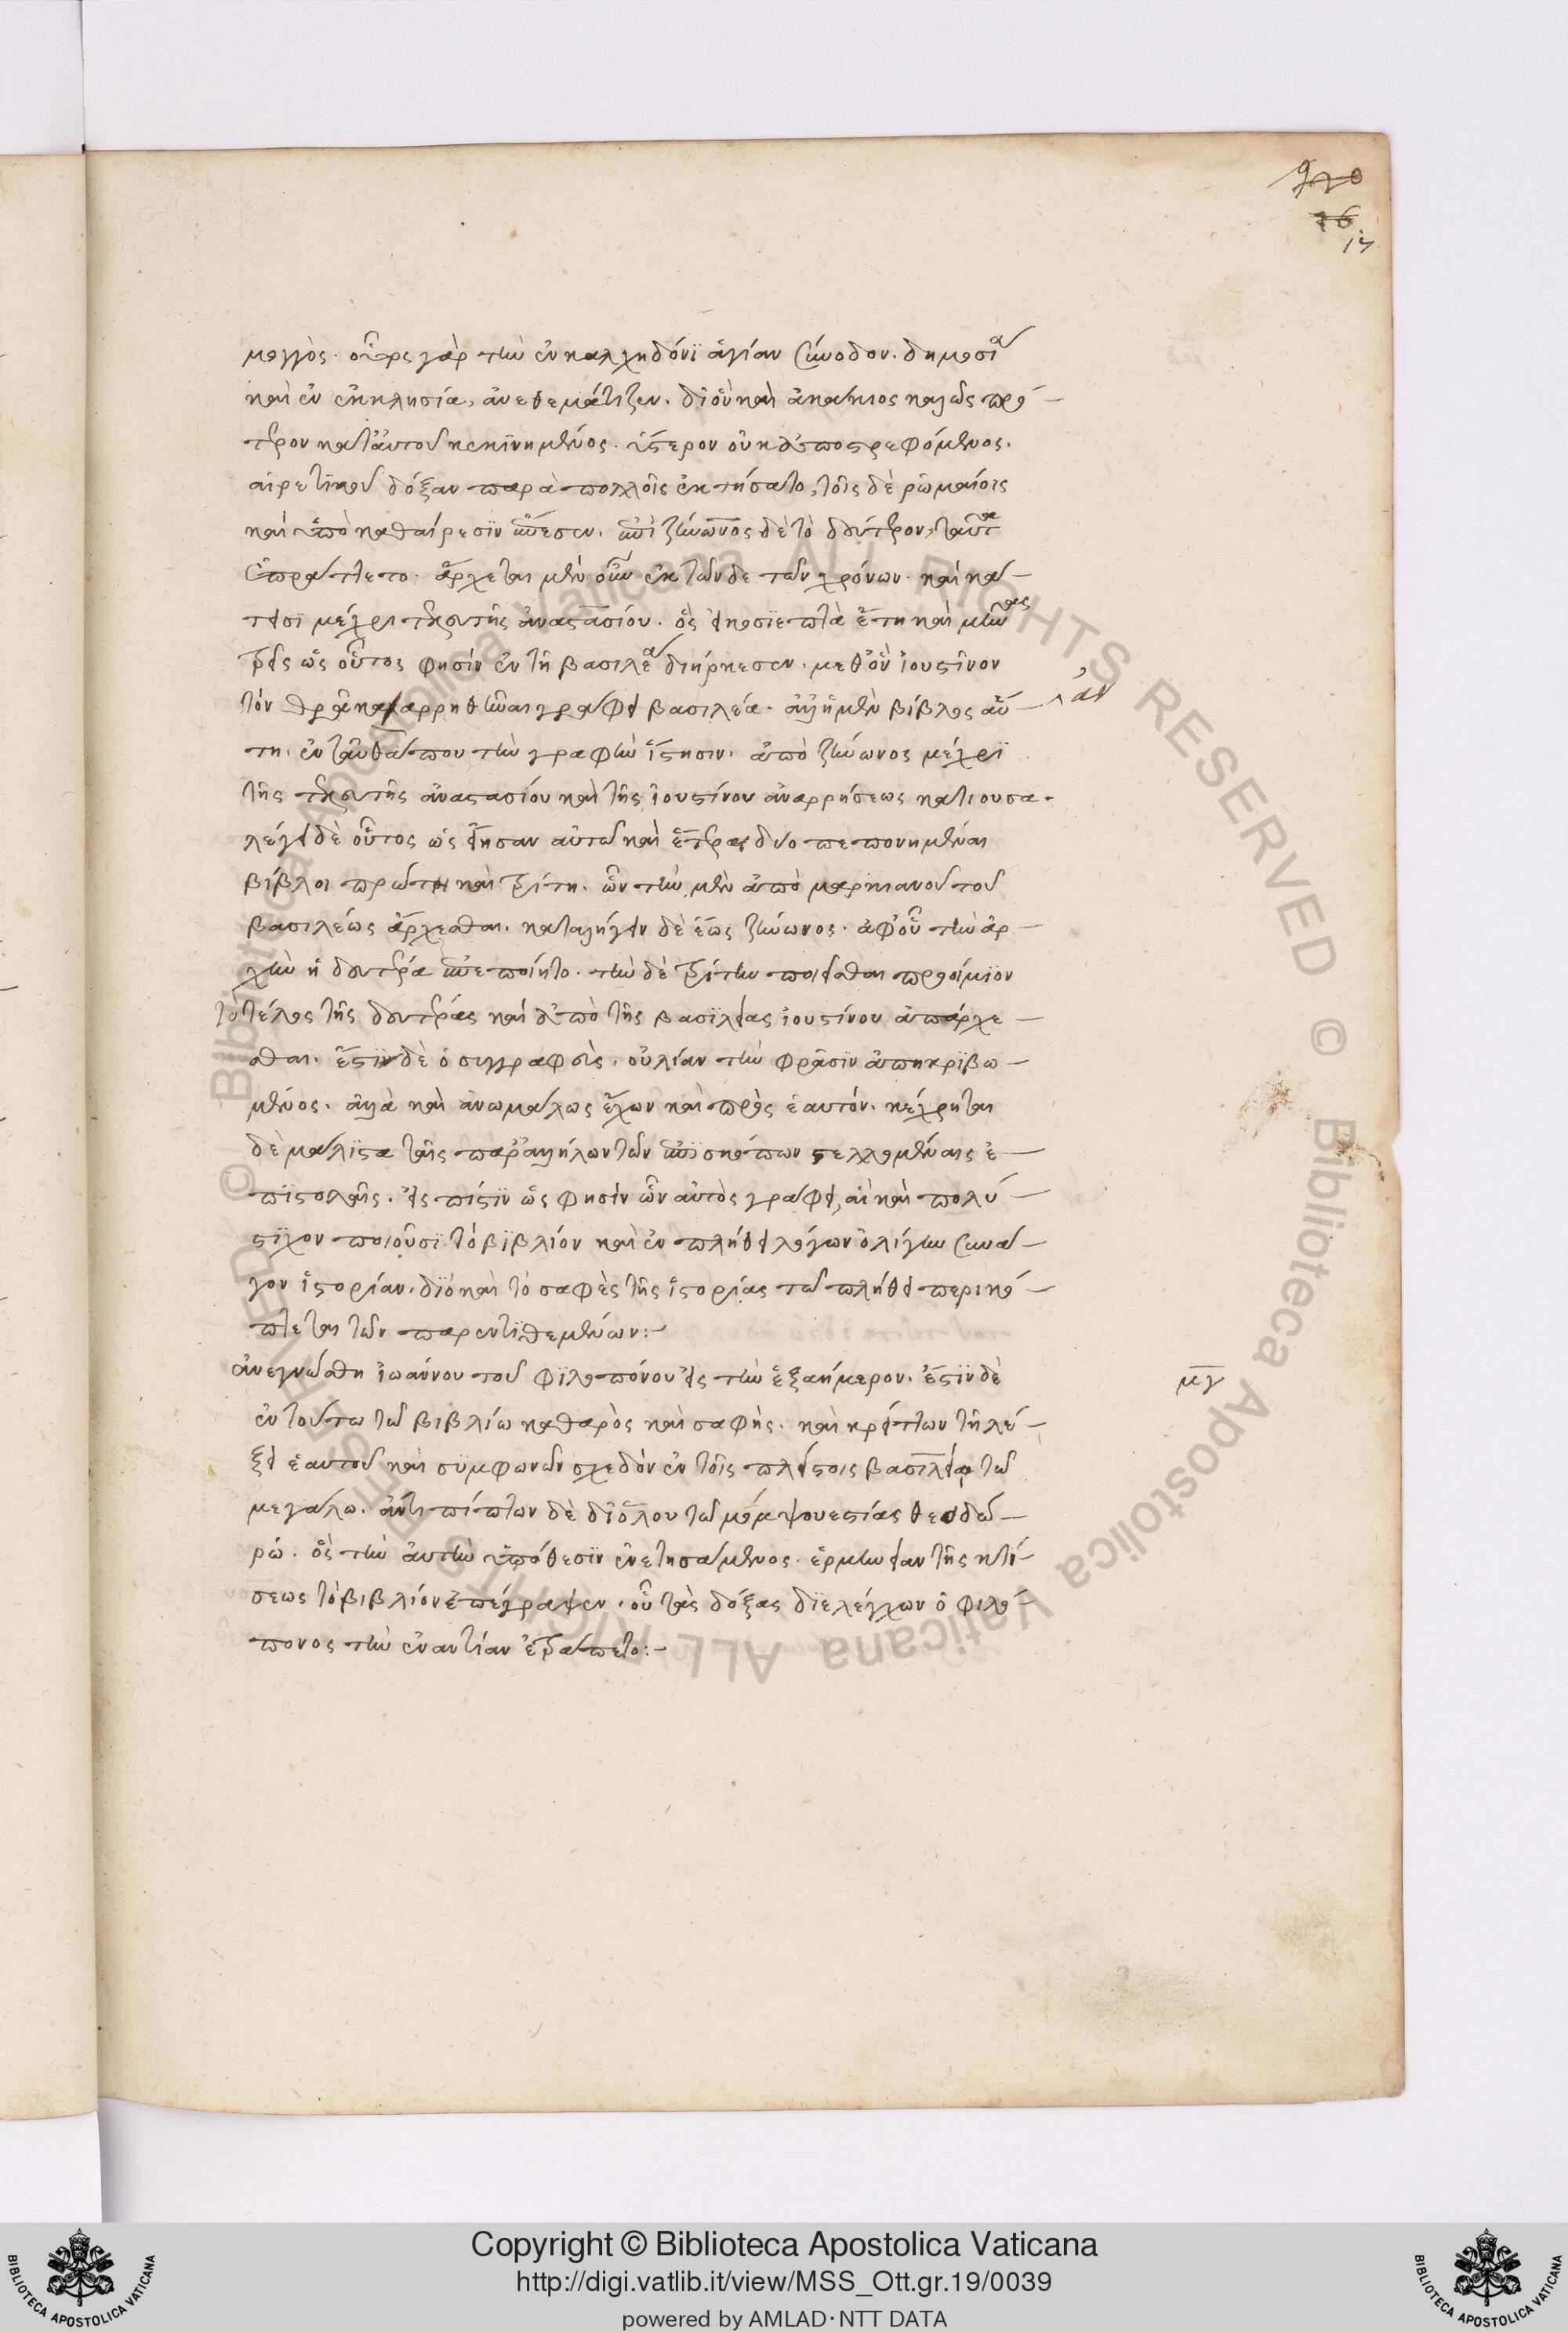 970
16
17
μογγὸς· οὗτος γὰρ τὴν ἐν καλχηδόνϊ ἁγίαν σύνοδον· δημοσίᾳ
καὶ ἐν ἐκκλησία, ἀνεθεμάτιζεν. δι' ὃν καὶ ἀκάκιος καλῶς πρό-
τερον κατ' αὐτοῦ κεκϊνημένος. ὕστερον οὐκ ἀποστρεφόμενος.
αἱρετικοῦ δόξαν παρὰ πολλοῖς ἐκτήσατο, τοῖς δὲ ῥωμαίοις
καὶ ὑπὸ καθαίρεσϊν ἔπεσεν. ἐπὶ ζήνωνος δὲ τὸ δεύτερον, ταῦτα
ἐπράττετο. ἄρχεται μὲν οὖν ἐκ τῶνδε τῶν χρόνων. καὶ κά-
τεισϊ μέχρι τελευτῆς ἀναστασίου. ὃς εἴκοσϊεπτὰ ἔτη καὶ μῆνας
τρεῖς ὥς οὗτος φησίν ἐν τῆ βασιλείᾳ διήρκεσεν. μεθ' ὃν ἰουστῖνον
τὸν θρᾶκα ἀρρηθῆναι γράφει βασιλέα. ἀλλ' ἡ μὲν βίβλος αὕ-
^ ἀν
τη. ἐνταῦθά που τὴν γραφὴν ἵστησιν. ἀπὸ ζήνωνος μέχρϊ
τῆς τελευτῆς ἀναστασίου καὶ τῆς ἰουστίνου ἀναρρήσεως κατιουσα.
λέγει δὲ οὗτος ὡς εἴησαν αὐτῶ καὶ ἕτεραι δύο πεπονημέναι
βίβλοι πρώτη καὶ τρίτη. ὧν τὴν μὲν ἀπὸ μαρκιανοῦ τοῦ
βασιλέως ἄρχεσθαι. καταλήγειν δὲ ἕως ζήνωνος. ἀφ' οὗ τὴν ἀρ-
χὴν ἡ δευτέρα ἐπεποίητο. τὴν δὲ τρίτην ποιεῖσθαι προοίμϊον
τὸ τέλος τῆς δευτέρας καὶ ἀπὸ τῆς βασϊλείας ἰουστίνου ἀπάρχε-
σθαι. ἔστϊν δὲ ὁ συγγραφεὺς. οὐ λίαν τὴν φρᾶσϊν ἀπηκρϊβω-
μένος. ἀλλὰ καὶ ἀνωμάλως ἔχων καὶ πρὸς ἑαυτόν. κέχρηται
δὲ μάλϊστα ταῖς παρ' ἀλλήλων τῶν ἐπϊσκόπων στελλομέναις ἐ-
πϊστολαῖς. εἰς πίστϊν ὥς φησὶν ὧν αὐτὸς γράφει, αἳ καὶ πολύ-
στϊχον ποιοῦσϊ τὸ βϊβλίον καὶ ἐν πλήθει λόγων ὀλίγην συνά-
γον ἱστορίαν. δϊὸ καὶ τὸ σαφὲς τῆς ἱστορίας τῶ πλήθει περικό-
πτεται τῶν παρεντϊθεμένων:-
ἀνεγνώσθη ἰωάννου τοῦ φϊλοπόνου εἰς τὴν ἑξαήμερον. ἔστϊν δὲ
μγ
ἐν τούτω τῶ βιβλίω καθαρὸς καὶ σαφὴς. καὶ κρείττων τῆ λέ-
ξει ἑαυτοῦ καὶ συμφωνῶν σχεδὸν ἐν τοῖς πλείστοις βασιλείω τῶ
μεγάλω. ἀντιπίπτων δὲ δϊόλου τῶ μομψουεστίας θεοδώ-
ρω. ὃς τὴν αὐτὴν ὑπόθεσϊν ἐνστησάμενος. ἑρμηνείαν τῆς κτί-
σεως τὸ βιβλίον ἐπέγραψεν. οὗ τὰς δόξας διελέγχων ὁ φιλό-
πονος τὴν ἐναντίαν ἐτράπετο:-
Copyright © Biblioteca Apostolica Vaticana
http://digi.vatlib.it/view/MSS_Ott.gr.19/0039
powered by AMLAD·NTT DATA